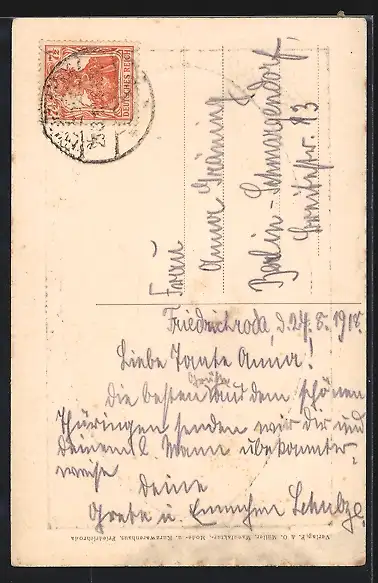 7½
DEUTSCHES REICH
Frau
Anna Gräning
Berlin-Schmargendorf
Breitestr. 13
Friedrichroda, d. 24. 8. 1918.
Liebe Tante Anna!
Die besten Grüße aus dem schönen
Thüringen senden wir dir und
deinem l. Mann unbekannter-
weise
deine
Grete u. Ennchen Schulze
Verlag F. A. O. Müller, Manufaktur-, Mode- u. Kurzwarenhaus, Friedrichroda